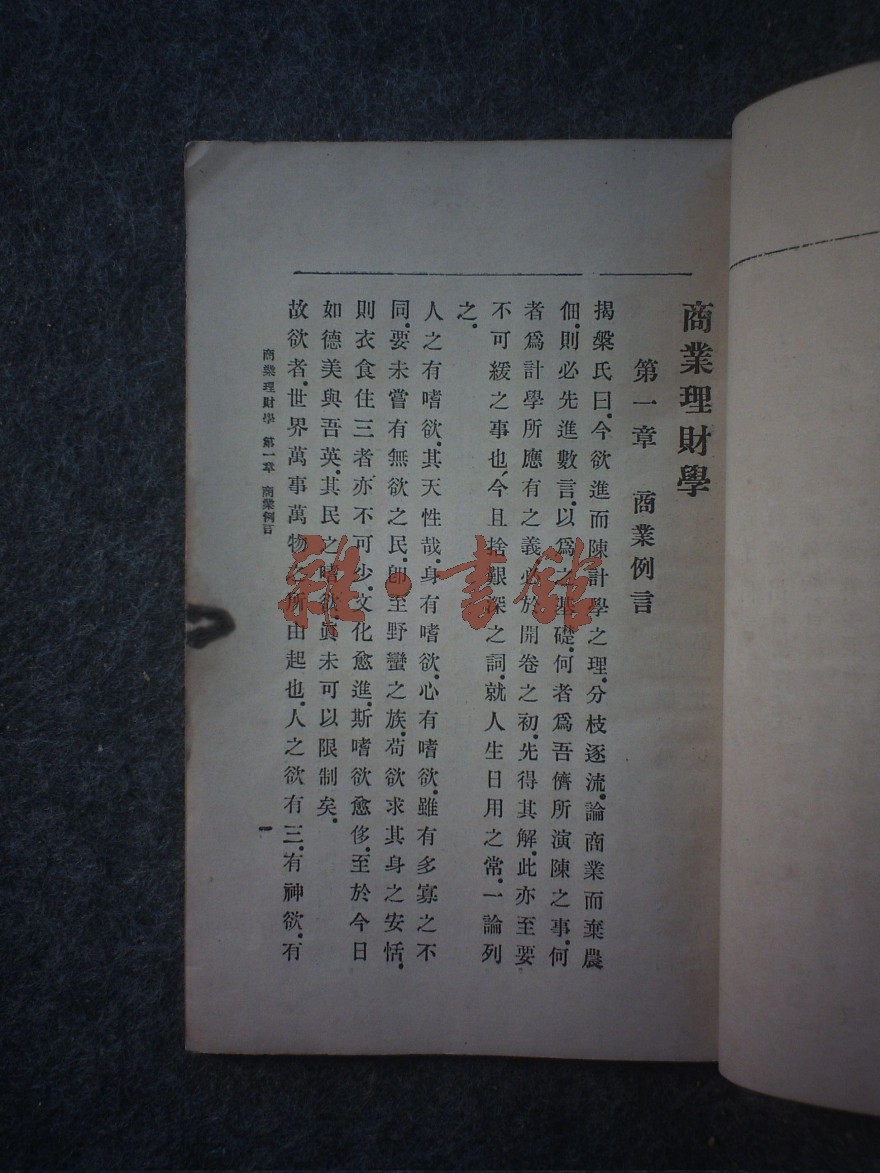 商業理財學
第一章 商業例言
揭槃氏曰.今欲進而陳計學之理.分枝逐流.論商業而棄農
佃.則必先進數言.以爲之基礎.何者爲吾儕所演陳之事.何
者爲計學所應有之義.必於開卷之初.先得其解.此亦至要
不可緩之事也.今且捨艱深之詞.就人生日用之常.一論列
之.
人之有嗜欲.其天性哉.身有嗜欲.心有嗜欲.雖有多寡之不
同.要未嘗有無欲之民.卽至野蠻之族.苟欲求其身之安恬.
則衣食住三者亦不可少.文化愈進.斯嗜欲愈侈.至於今日
如德美與吾英.其民之嗜欲.眞未可以限制矣.
故欲者.世界萬事萬物之所由起也.人之欲有三.有神欲.有
商業理財學 第一章 商業例言
一
雜·書館